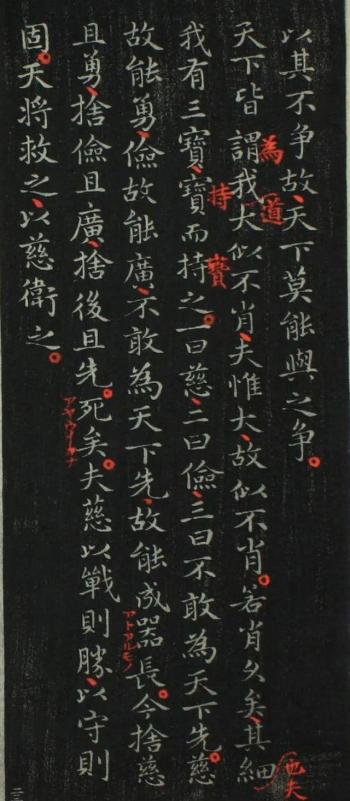 以其不争故、天下莫能與之争。
天下皆謂我大似不肖、夫惟大、故似不肖。若肖久矣、其細
為
道
也夫
我有三寶、寶而持之。一曰慈、二曰儉、三曰不敢為天下先。慈
持
寶
故能勇、儉故能廣、不敢為天下先、故能成器長。今捨慈
且勇、捨儉且廣、捨後且先。死矣。夫慈以戰則勝、以守則
固。天将救之、以慈衛之。